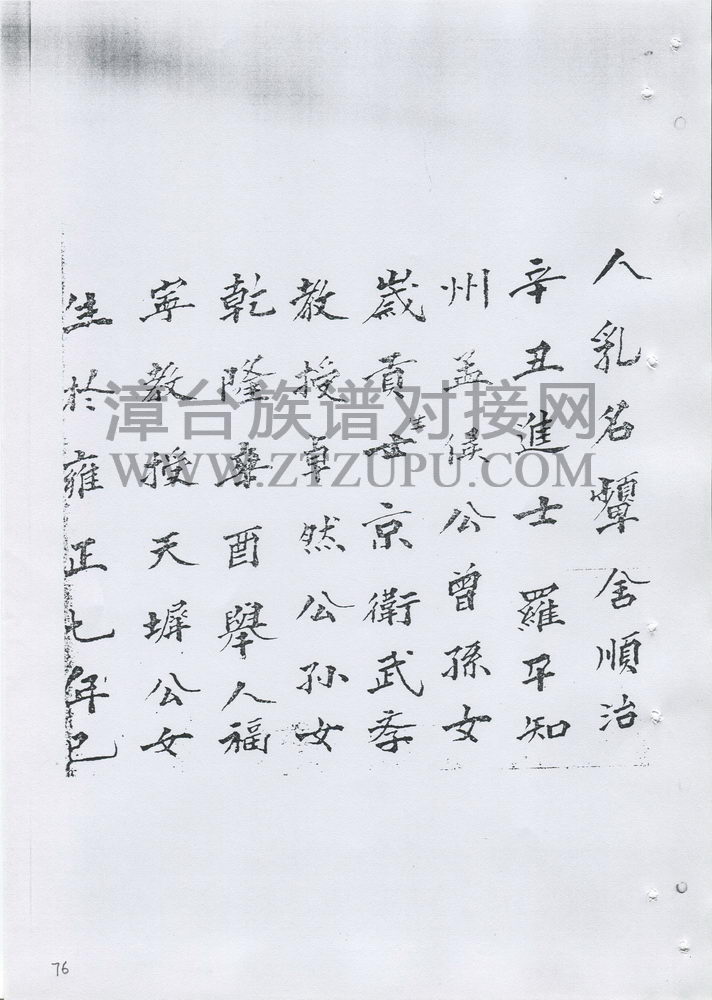 人乳名顰舍順治
辛丑進士羅平知
州孟侯公曾孫女
歲貢生安京衛武李
教授卓然公孫女
乾隆癸酉舉人福
寧教授天墀公女
生於雍正七年己
漳台族谱对接网
WWW.ZTZUPU.COM
76